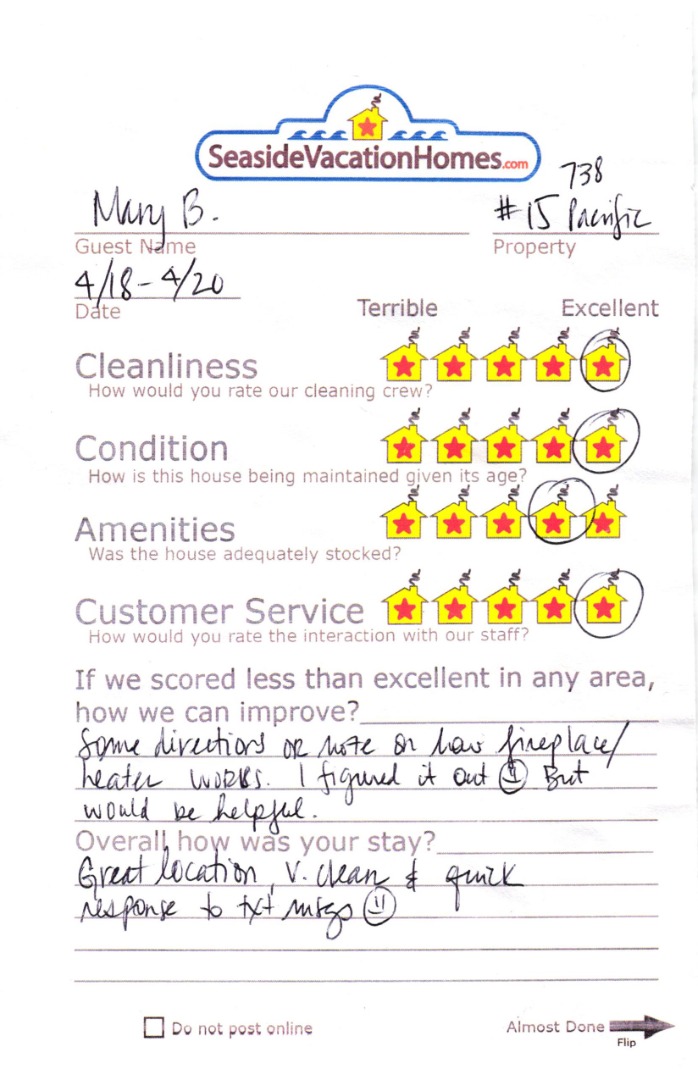 SeasideVacationHomes.com
738
Mary B. #15 Pacific
Guest Name Property
4/18 - 4/20
Date
Terrible Excellent
Cleanliness
How would you rate our cleaning crew?
Condition
How is this house being maintained given its age?
Amenities
Was the house adequately stocked?
Customer Service
How would you rate the interaction with our staff?
If we scored less than excellent in any area,
how we can improve?
Some directions or note on how fireplace/
heater works. I figured it out But
would be helpful.
Overall how was your stay?
Great location, V. clean & quick
response to txt msgs
Do not post online Almost Done
Flip